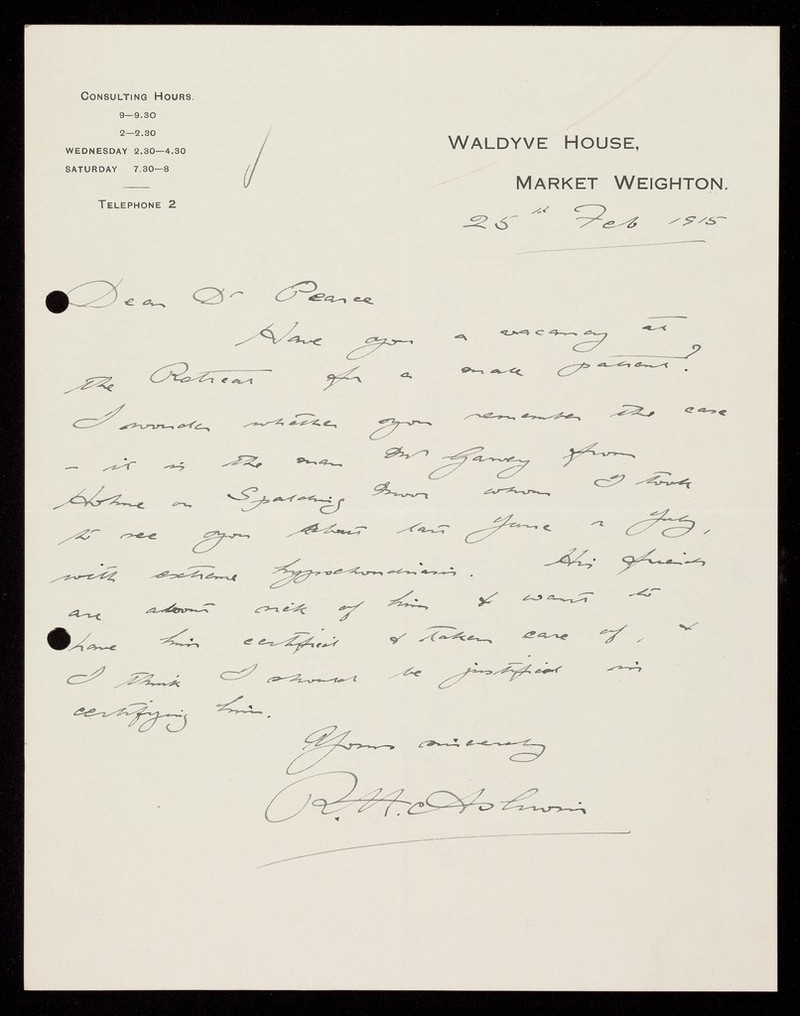 CONSULTING HOURS.
9—9.30
2—2.30
WEDNESDAY 2.30—4.30
SATURDAY 7.30—8
TELEPHONE 2
WALDYVE HOUSE,
MARKET WEIGHTON.
25th Feb 1915
Dear Dr Pearce
Have you a vacancy at
the Retreat for a male patient?
I wonder whether you remember the case
- it is the man Mr Garvey from
Holme on Spalding Moor whom I took
to see you about last June or July,
with extreme hypochondriasis. His friends
are about sick of him & want to
have him certified & taken care of, &
I think I should be justified in
certifying him.
Yours sincerely
R. H. Ashwin